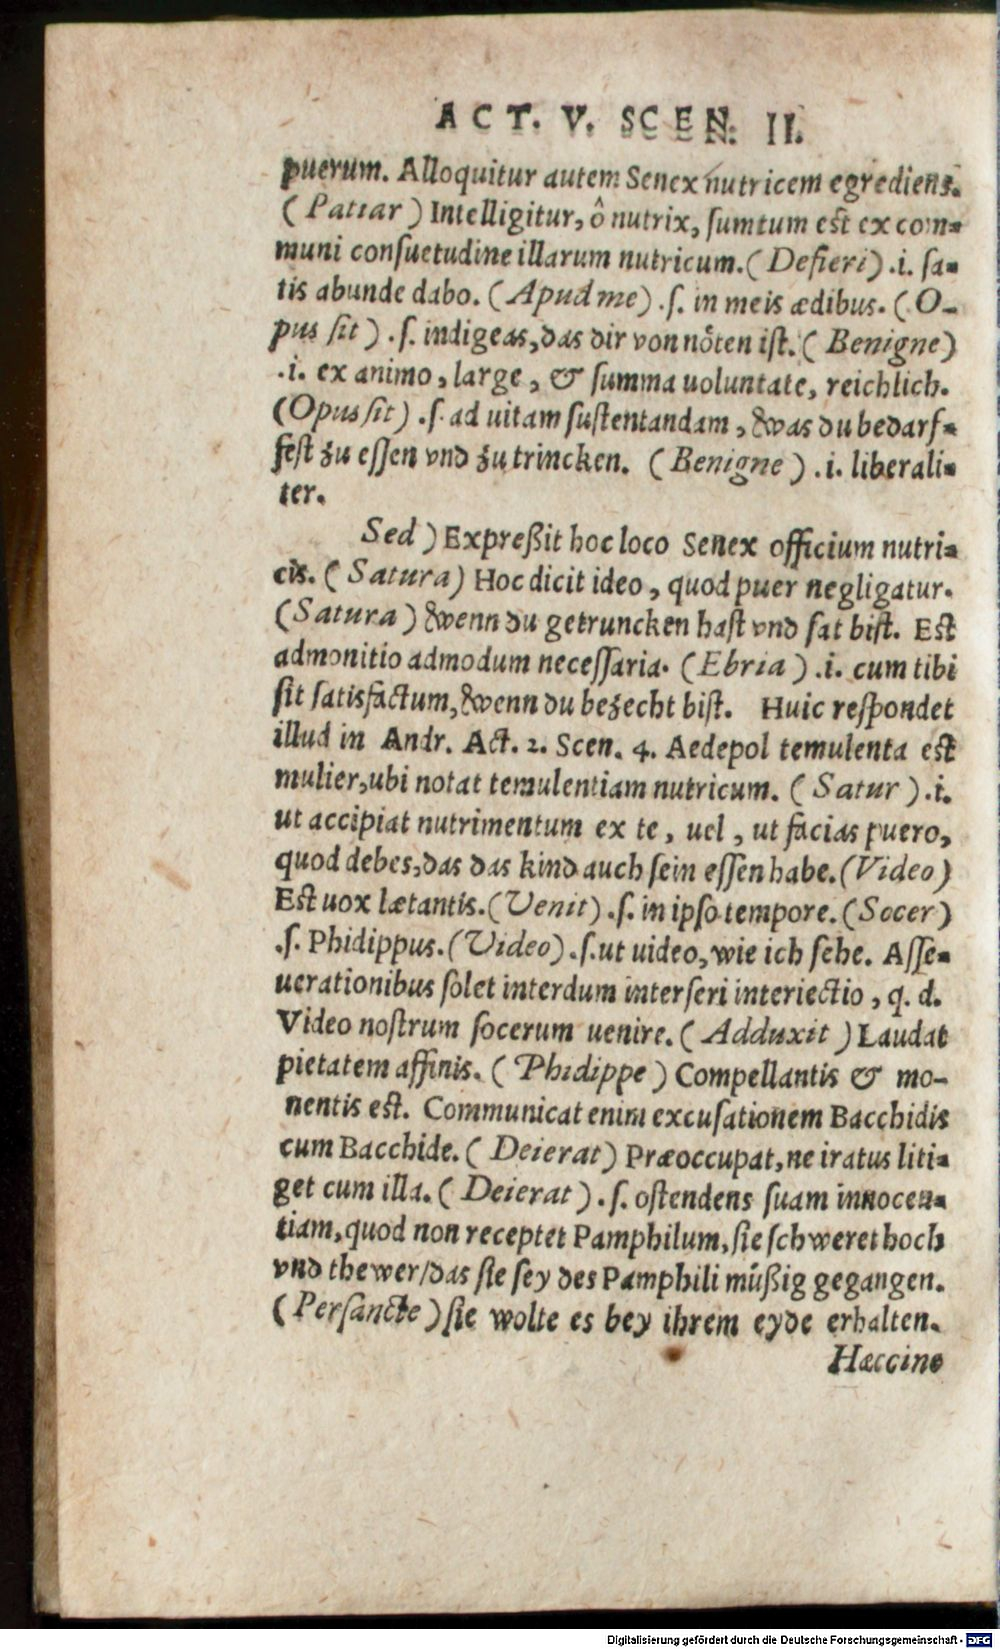 ACT. V. SCEN. II.
puerum. Alloquitur autem Senex nutricem egrediens.
(Patiar) Intelligitur, ô nutrix, ſumtum eſt ex com-
muni conſuetudine illarum nutricum. (Defieri) .i. ſa-
tis abunde dabo. (Apud me) .ſ. in meis ædibus. (O-
pus ſit) .ſ. indigeas, das dir von nöten iſt. (Benigne)
.i. ex animo, large, & ſumma uoluntate, reichlich.
(Opus ſit) .ſ. ad uitam ſuſtentandam, was du bedarf-
feſt zu eſſen vnd zu trincken. (Benigne) .i. liberali-
ter.
Sed) Expreßit hoc loco Senex officium nutri-
cis. (Satura) Hoc dicit ideo, quod puer negligatur.
(Satura) wenn du getruncken haſt vnd ſat biſt. Eſt
admonitio admodum neceſſaria. (Ebria) .i. cum tibi
ſit ſatisfactum, wenn du bezecht biſt. Huic reſpondet
illud in Andr. Act. 2. Scen. 4. Aedepol temulenta eſt
mulier, ubi notat temulentiam nutricum. (Satur) .i.
ut accipiat nutrimentum ex te, uel, ut facias puero,
quod debes, das das kind auch ſein eſſen habe. (Video)
Eſt uox lætantis. (Venit) .ſ. in ipſo tempore. (Socer)
.ſ. Phidippus. (Video) .ſ. ut uideo, wie ich ſehe. Aſſe-
uerationibus ſolet interdum interſeri interiectio, q. d.
Video noſtrum ſocerum uenire. (Adduxit) Laudat
pietatem affinis. (Phidippe) Compellantis & mo-
nentis eſt. Communicat enim excuſationem Bacchidis
cum Bacchide. (Deierat) Præoccupat, ne iratus liti-
get cum illa. (Deierat) .ſ. oſtendens ſuam innocen-
tiam, quod non receptet Pamphilum, ſie ſchweret hoch
vnd thewer/das ſie ſey des Pamphili müßig gegangen.
(Perſancte) ſie wolte es bey ihrem eyde erhalten.
Hæccine
Digitalisierung gefördert durch die Deutsche Forschungsgemeinschaft - DFG